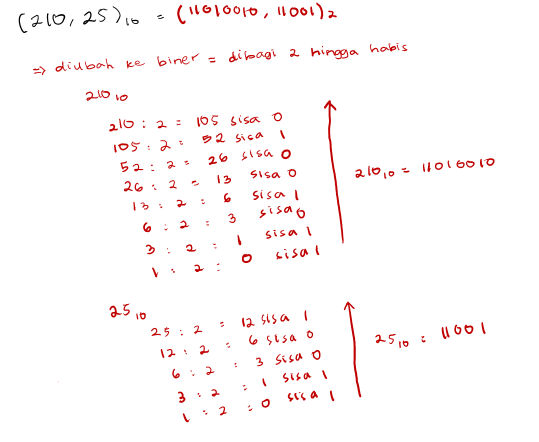 (210, 25)₁₀ = (11010010, 11001)₂
⇒ diubah ke biner = dibagi 2 hingga habis
210₁₀
210 : 2 = 105 sisa 0
105 : 2 = 52 sisa 1
52 : 2 = 26 sisa 0
26 : 2 = 13 sisa 0
13 : 2 = 6 sisa 1
6 : 2 = 3 sisa 0
3 : 2 = 1 sisa 1
1 : 2 = 0 sisa 1
210₁₀ = 11010010
25₁₀
25 : 2 = 12 sisa 1
12 : 2 = 6 sisa 0
6 : 2 = 3 sisa 0
3 : 2 = 1 sisa 1
1 : 2 = 0 sisa 1
25₁₀ = 11001